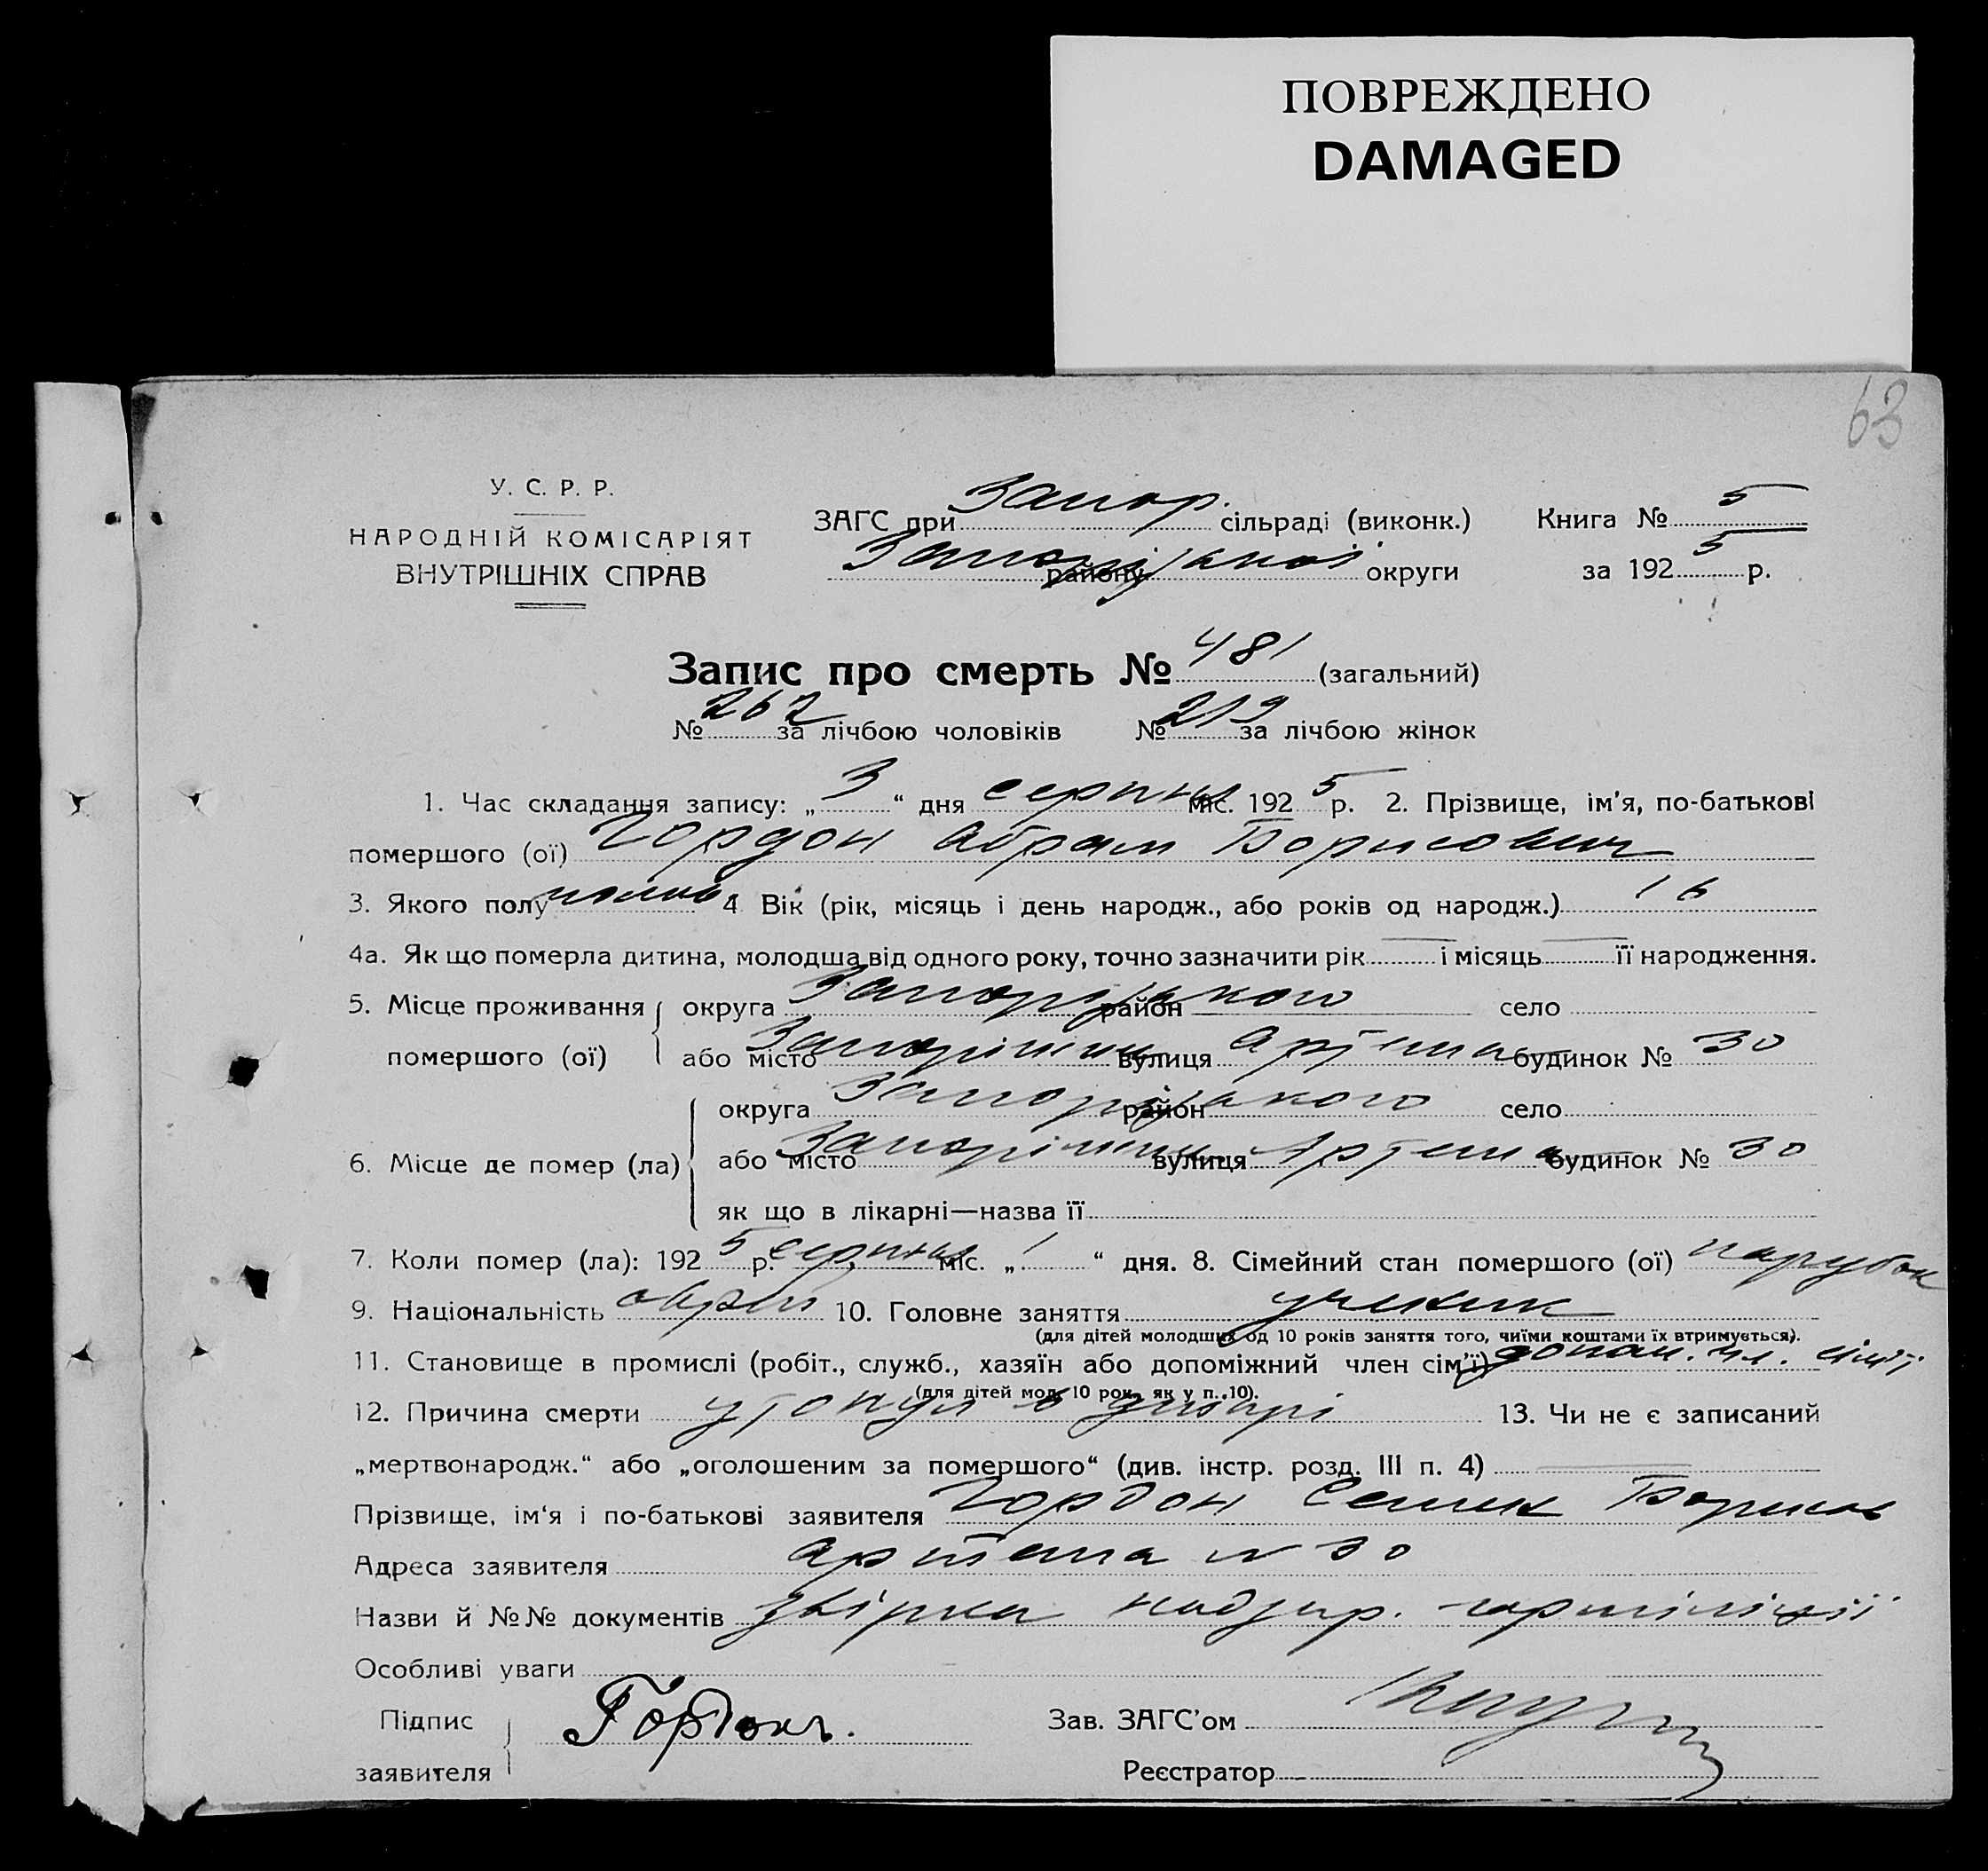 ПОВРЕЖДЕНО
DAMAGED
63
У. С. Р. Р.
НАРОДНІЙ КОМІСАРІЯТ
ВНУТРІШНІХ СПРАВ
ЗАГС при Запор. сільраді (виконк.) Книга № 5
Запорізької району округи за 1925 р.
Запис про смерть № 481 (загальний)
№ 262 за лічбою чоловіків № 219 за лічбою жінок
1. Час складання запису: „3“ дня серпня міс. 1925 р. 2. Прізвище, ім'я, по-батькові
помершого (ої) Гордон Абрам Борисович
3. Якого полу 4 Вік (рік, місяць і день народж., або років од народж.) 16
4а. Як що померла дитина, молодша від одного року, точно зазначити рік — і місяць — її народження.
5. Місце проживання округа Запорізького район — село
помершого (ої) або місто Запоріжжя вулиця Артема будинок № 30
округа Запорізького район село
6. Місце де помер (ла) або місто Запоріжжя вулиця Артема будинок № 30
як що в лікарні—назва її
7. Коли помер (ла): 1925 р. серпня міс. „1“ дня. 8. Сімейний стан помершого (ої) парубок
9. Національність єврей 10. Головне заняття ученик
(для дітей молодших од 10 років заняття того, чиїми коштами їх втримується).
11. Становище в промислі (робіт., служб., хазяїн або допоміжний член сім'ї) допом. чл. сім'ї
(для дітей мол. 10 рок. як у п. 10).
12. Причина смерти утонул в Дніпрі 13. Чи не є записаний
„мертвонародж.“ або „оголошеним за помершого“ (див. інстр. розд. III п. 4) —
Прізвище, ім'я і по-батькові заявителя Гордон Семен Борисов
Адреса заявителя Артема № 30
Назви й №№ документів надзир. гормиліції
Особливі уваги
Підпис заявителя Гордонъ. Зав. ЗАГС'ом
Реєстратор